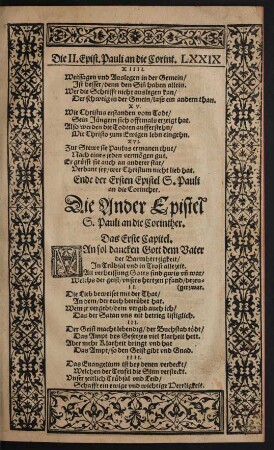 Die II. Epist. Pauli an die Corint. LXXIX
XIIII.
Weissagen vnd Auslegen in der Gemein/
Ist besser/ denn den Sin haben allein.
Wer die Schrifft nicht auslegen kan/
Der schweig in der Gmein/ lass ein andern than.
XV.
Wie Christus erstanden vom Todt/
Sein Jüngern sich offtmals erzeigt hat.
Also von den Todten aufferstehn/
Wir Christo zum Ewigen lebn eingehn.
XVI.
Zur Stewr sie Paulus ermanen thut/
Nach eins jeden vermögen gut.
Er grüsst sie auch an anderer stat/
Verbant jey/ wer Christum nicht lieb hat.
Ende der Ersten Epistel S. Pauli
an die Corinther.
Die Ander Epistel
S. Pauli an die Corinther.
Das Erste Capitel.
MAn sol dancken Gott dem Vater
der Barmhertzigkeit/
In Trübsal vnd in Trost allezeit.
All verheissung Gotes sind gwis vñ war/
Welchs der geist/ vnsers hertzen pfand/ bezeu-
(get)war.
II.
Die Lieb beweiset mit der That/
An dem/ der euch betrübet hat.
Wem jr vergebt/ dem vergib auch ich/
Das der Satan vns nit betrieg listiglich.
III.
Der Geist macht lebendig/ der Buchstab tödt/
Das Ampt des Gesetzes viel klarheit hett.
Aber mehr Klarheit bringt vnd hat
Das Ampt/ so den Geist gibt vnd Gnad.
IIII.
Das Euangelium ist bey denen verdeckt/
Welchen der Teufel die Sinn versteckt.
Vnser zeitlich Trübsal vnd Leid/
Schafft ein ewige vnd wichtige Herrligkeit.